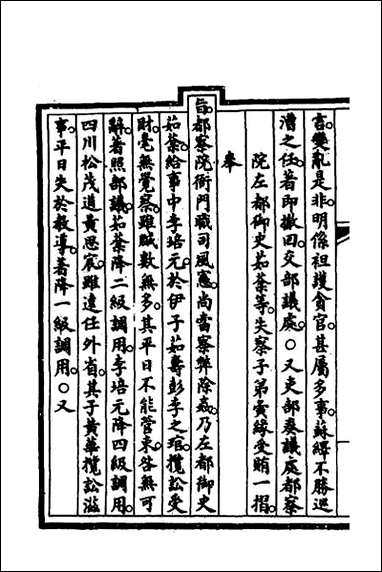 言變亂是非明係袒護貪官甚屬多事蘇繹不勝巡
漕之任著即撤回交部議處○又吏部奏議處都察
院左都御史茹棻等失察子弟夤緣受賄一摺
奉
旨都察院衙門職司風憲尚當察弊除姦乃左都御史
茹棻給事中李培元於伊子茹壽彭李之琯攬訟受
財毫無覺察雖贓數無多其平日不能管束咎無可
辭著照部議茹棻降二級調用李培元降四級調用
四川松茂道黃思宸雖遠任外省其子黃華攬訟滋
事平日失於教導著降一級調用○又